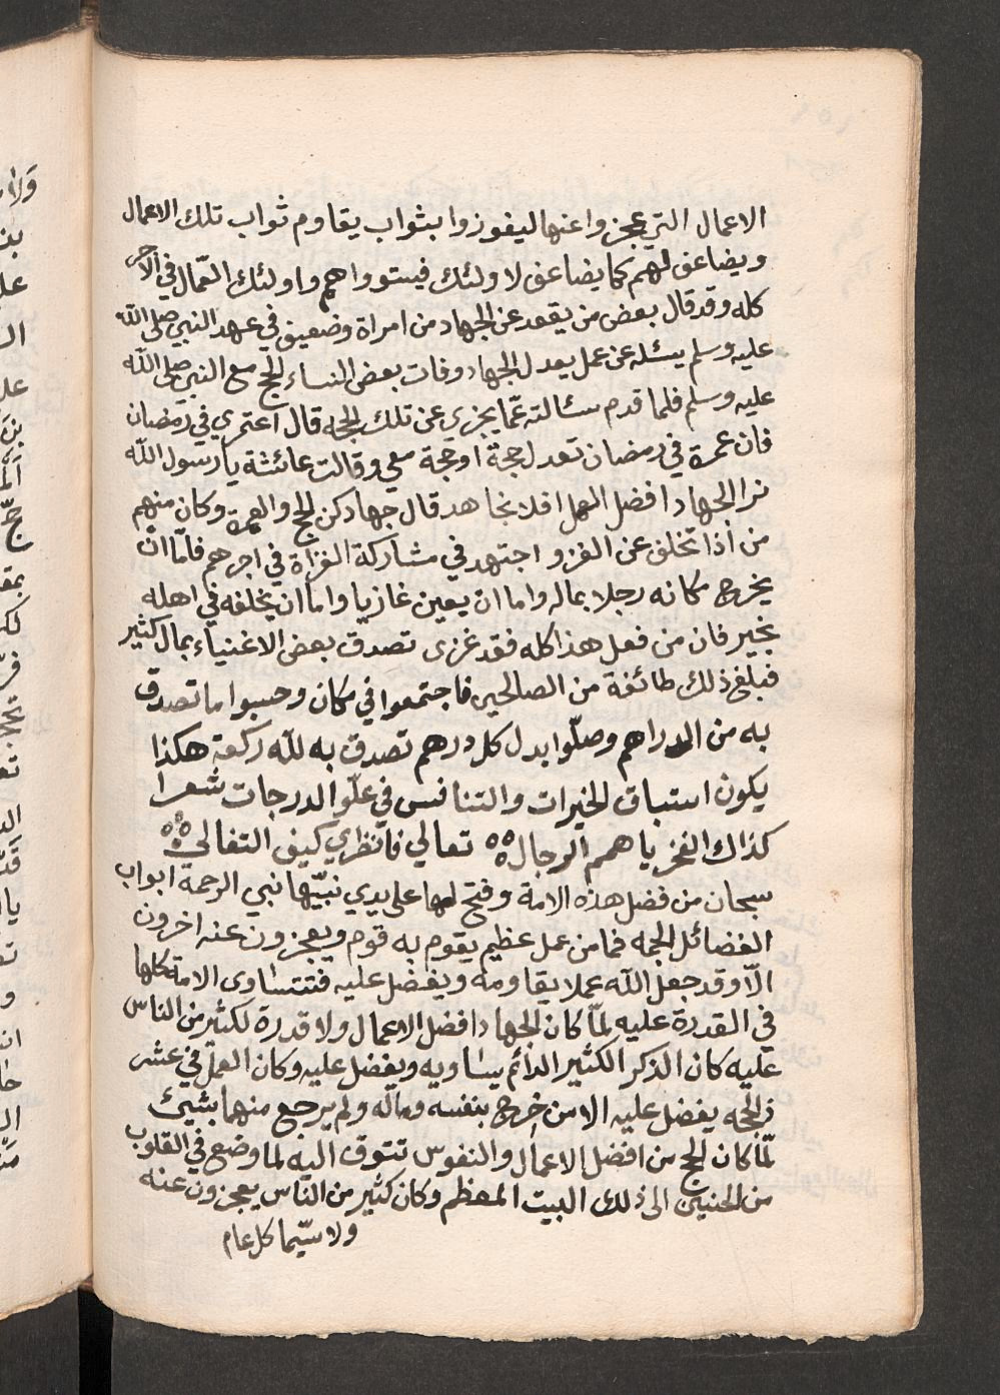 الاعمال التي عجزوا عنها ليفوزوا بثواب يقاوم ثواب تلك الاعمال
ويضاعف لهم كما يضاعف لاولئك فيستووا هم واولئك العمّال في الاجر
كله وقد قال بعض من يقعد عن الجهاد من امراة وضعيف في عهد النبي صلى الله
عليه وسلم يسئله عن عمل يعدل الجهاد وفات بعض النساء الحج مع النبي صلى الله
عليه وسلم فلما قدم سئالته عمّا يجزي عن تلك الحجه قال اعتمري في رمضان
فان عمرة في رمضان تعدل حجة او حجة معي وقالت عائشة يا رسول الله
نرا الجهاد افضل العمل افلا نجاهد قال جهادكن الحج والعمرة وكان منهم
من اذا تخلف عن الغزو اجتهد في مشاركة الغزاة في اجرهم فامّا ان
يخرج مكانه رجلا بماله واما ان يعين غازيا واما ان يخلفه في اهله
بخير فان من فعل هذا كله فقد غزى تصدق بعض الاغنياء بمال كثير
فبلغ ذلك طائفة من الصالحين فاجتمعوا في مكان وحسبوا ما تصدق
به من الدراهم وصلّوا بدل كل درهم تصدق به لله ركعة هكذا
يكون استباق الخيرات والتنافس في علّو الدرجات شعرا
كذاك الفخر يا همم الرجال ٥٥ تعالي فانظري كيف التغالي ٥٥٥
سبحان من فضل هذه الامة وفتح لها على يدي نبيّها نبي الرحمة ابواب
الفضائل الجمه فما من عمل عظيم يقوم به قوم ويعجزون عنه اخرون
الّا وقد جعل الله عملا يقاومه ويفضل عليه فتتساوى الامة كلها
في القدرة عليه لمّا كان الجهاد افضل الاعمال ولا قدرة لكثير من الناس
عليه كان الذكر الكثير الدائم يساويه ويفضل عليه وكان العمل في عشر
ذي الحجه يفضل عليه الا من خرج بنفسه وماله ولم يرجع منهما بشيئ
لمّا كان الحج من افضل الاعمال والنفوس تتوق اليه لما وضع في القلوب
من الحنين الى ذلك البيت المعظم وكان كثير من الناس يعجزون عنه
ولا سيّما كل عام